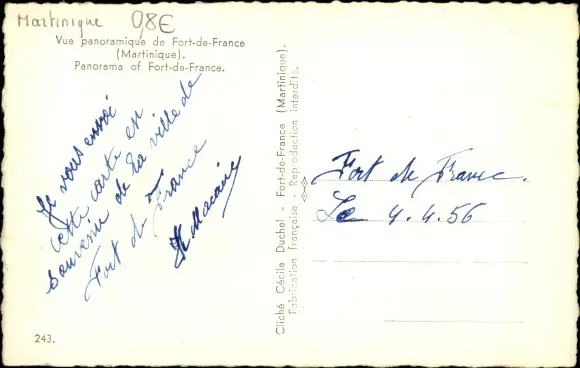 Martinique 08€
Vue panoramique de Fort-de-France
(Martinique).
Panorama of Fort-de-France.
Je vous envoi
cette carte en
souvenir de la ville de
Fort de France
Cliché Cécile Duchel - Fort-de-France (Martinique).
Fabrication française - Reproduction interdite.
Fort de France.
Le 4.4.56
243.